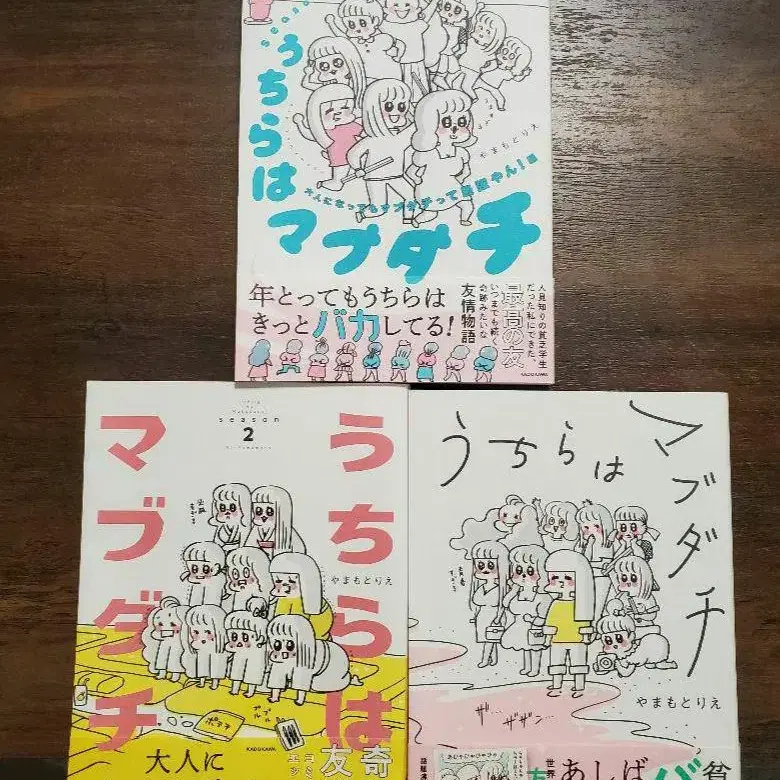 うちらは
マブダチ
やまもとりえ
大人になってもマブダチって最強やん!編
年とってもうちらは
きっとバカしてる!
人見知りの貧乏学生
だった私にできた、
最高の友
いつまでも続く
奇跡みたいな
友情物語
KADOKAWA
season
2
うちらは
マブダチ
やまもとりえ
ポテチ
プルプル
KADOKAWA
大人に
奇
友
うちらは
マブダチ
やまもとりえ
ザ… ザザン…
貧
バ
あしば
世界